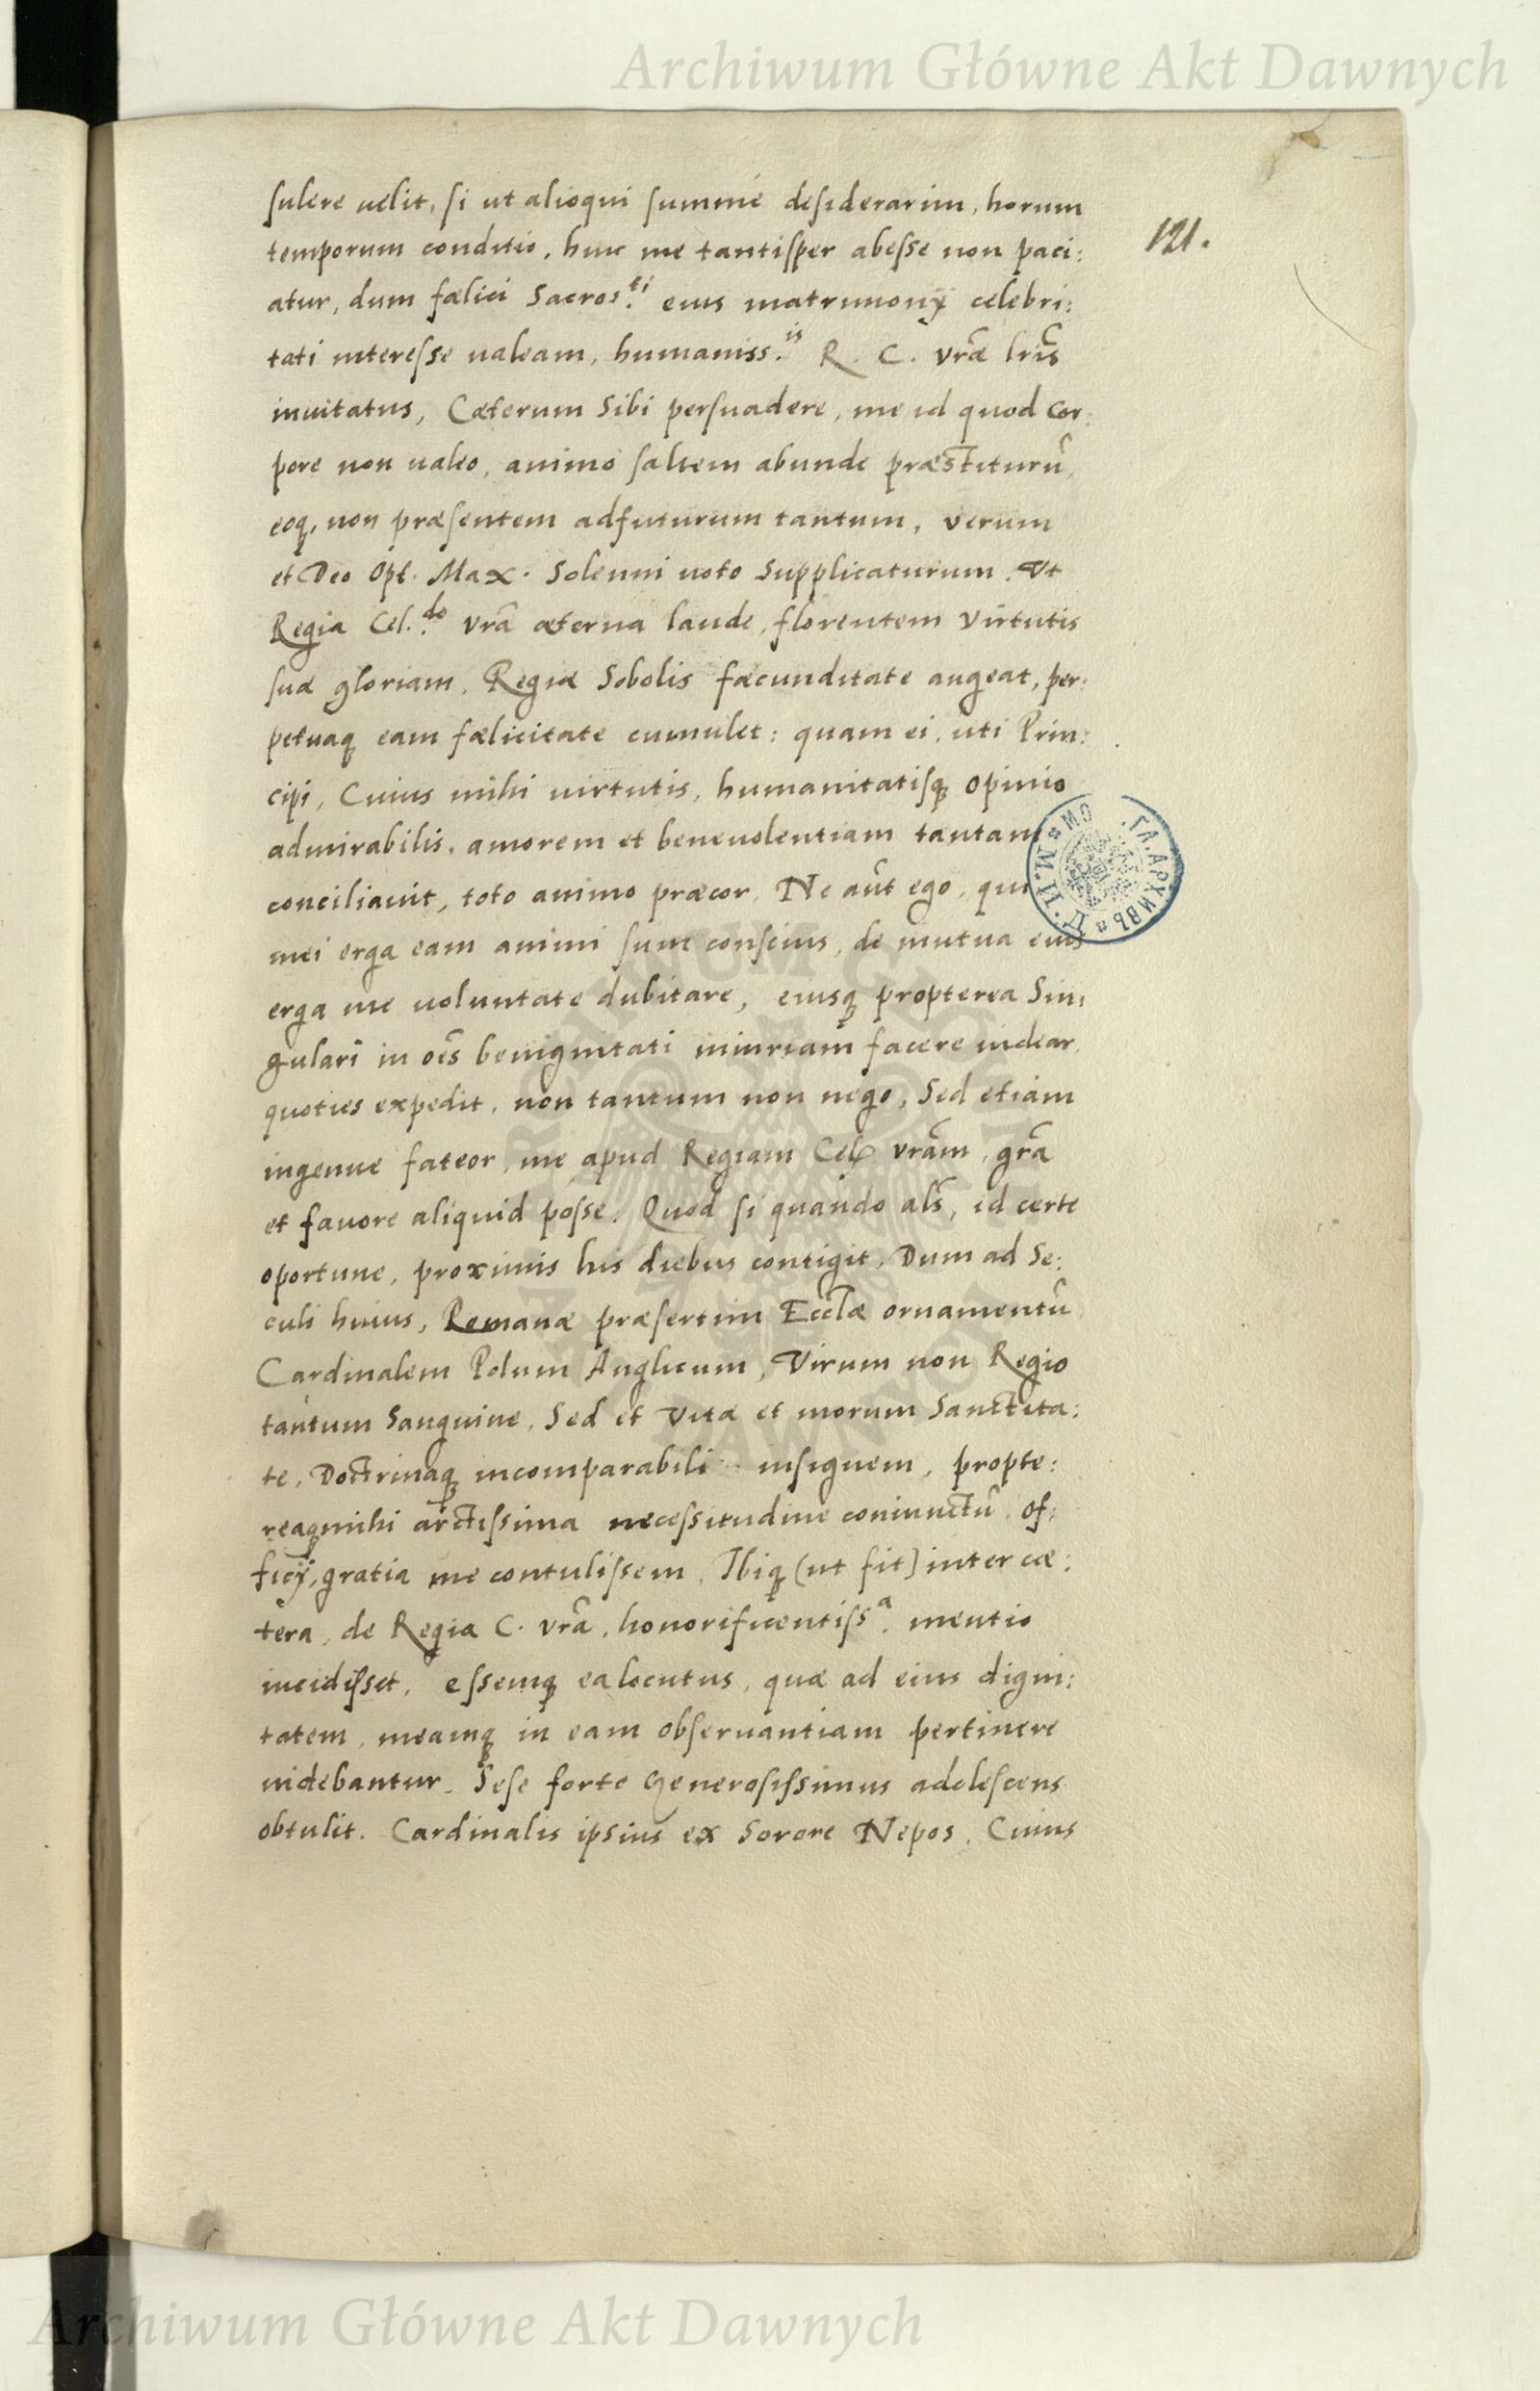 Archiwum Główne Akt Dawnych
121.
sulere uelit, si ut alioqui summé desiderarim, horum
temporum conditio, hinc me tantisper abesse non paci:
atur, dum fælici Sacros.ti eius matrimonÿ celebri:
tati interesse ualeam, humaniss.is R. C. vræ lris
inuitatus, Cæterum Sibi persuadere, me id quod Cor:
pore non ualeo, animo saltem abunde præstiturū,
eoq, non præsentem adfuturum tantum, verum
et Deo Opt. Max. Solenni uoto Supplicaturum. Vt
Regia Cel.do vrā æterna laude, florentem Virtutis
suæ gloriam, Regiæ Sobolis fæcunditate augeat, per:
petuaq eam fælicitate cumulet: quam ei, uti Prin:
cipi, Cuius mihi uirtutis, humanitatisq opinio
admirabilis, amorem et beneuolentiam tantam
conciliauit, toto animo præcor. Ne aūt ego, qui
mei erga eam animi sum conscius, de mutua eius
erga me uoluntate dubitare, eiusq propterea Sin:
gulari in oēs benignitati iniuriam facere uidear,
quoties expedit, non tantum non nego, Sed etiam
ingenue fateor, me apud Regiam Cel. vrām, grā
et fauore aliquid posse. Quod si quando als, id certe
oportune, proximis his diebus contigit, Dum ad Se:
culi huius, Romanæ præsertim Ecclæ ornamentū
Cardinalem Polum Anglicum, Virum non Regio
tantum Sanguine, Sed et Vitæ et morum Sanctita:
te, Doctrinaq incomparabili insignem, propte:
reaq mihi arctissima necessitudine coniunctū, of:
ficÿ, gratia me contulissem, Ibiq (ut fit) inter cæ:
tera, de Regia C. vrā, honorificentiss.a mentio
incidisset, essemq ea locutus, quæ ad eius digni:
tatem, meamq in eam obseruantiam pertinere
uidebantur. Sese forte Generosissimus adolescens
obtulit. Cardinalis ipsius ex Sorore Nepos, Cuius
Archiwum Główne Akt Dawnych